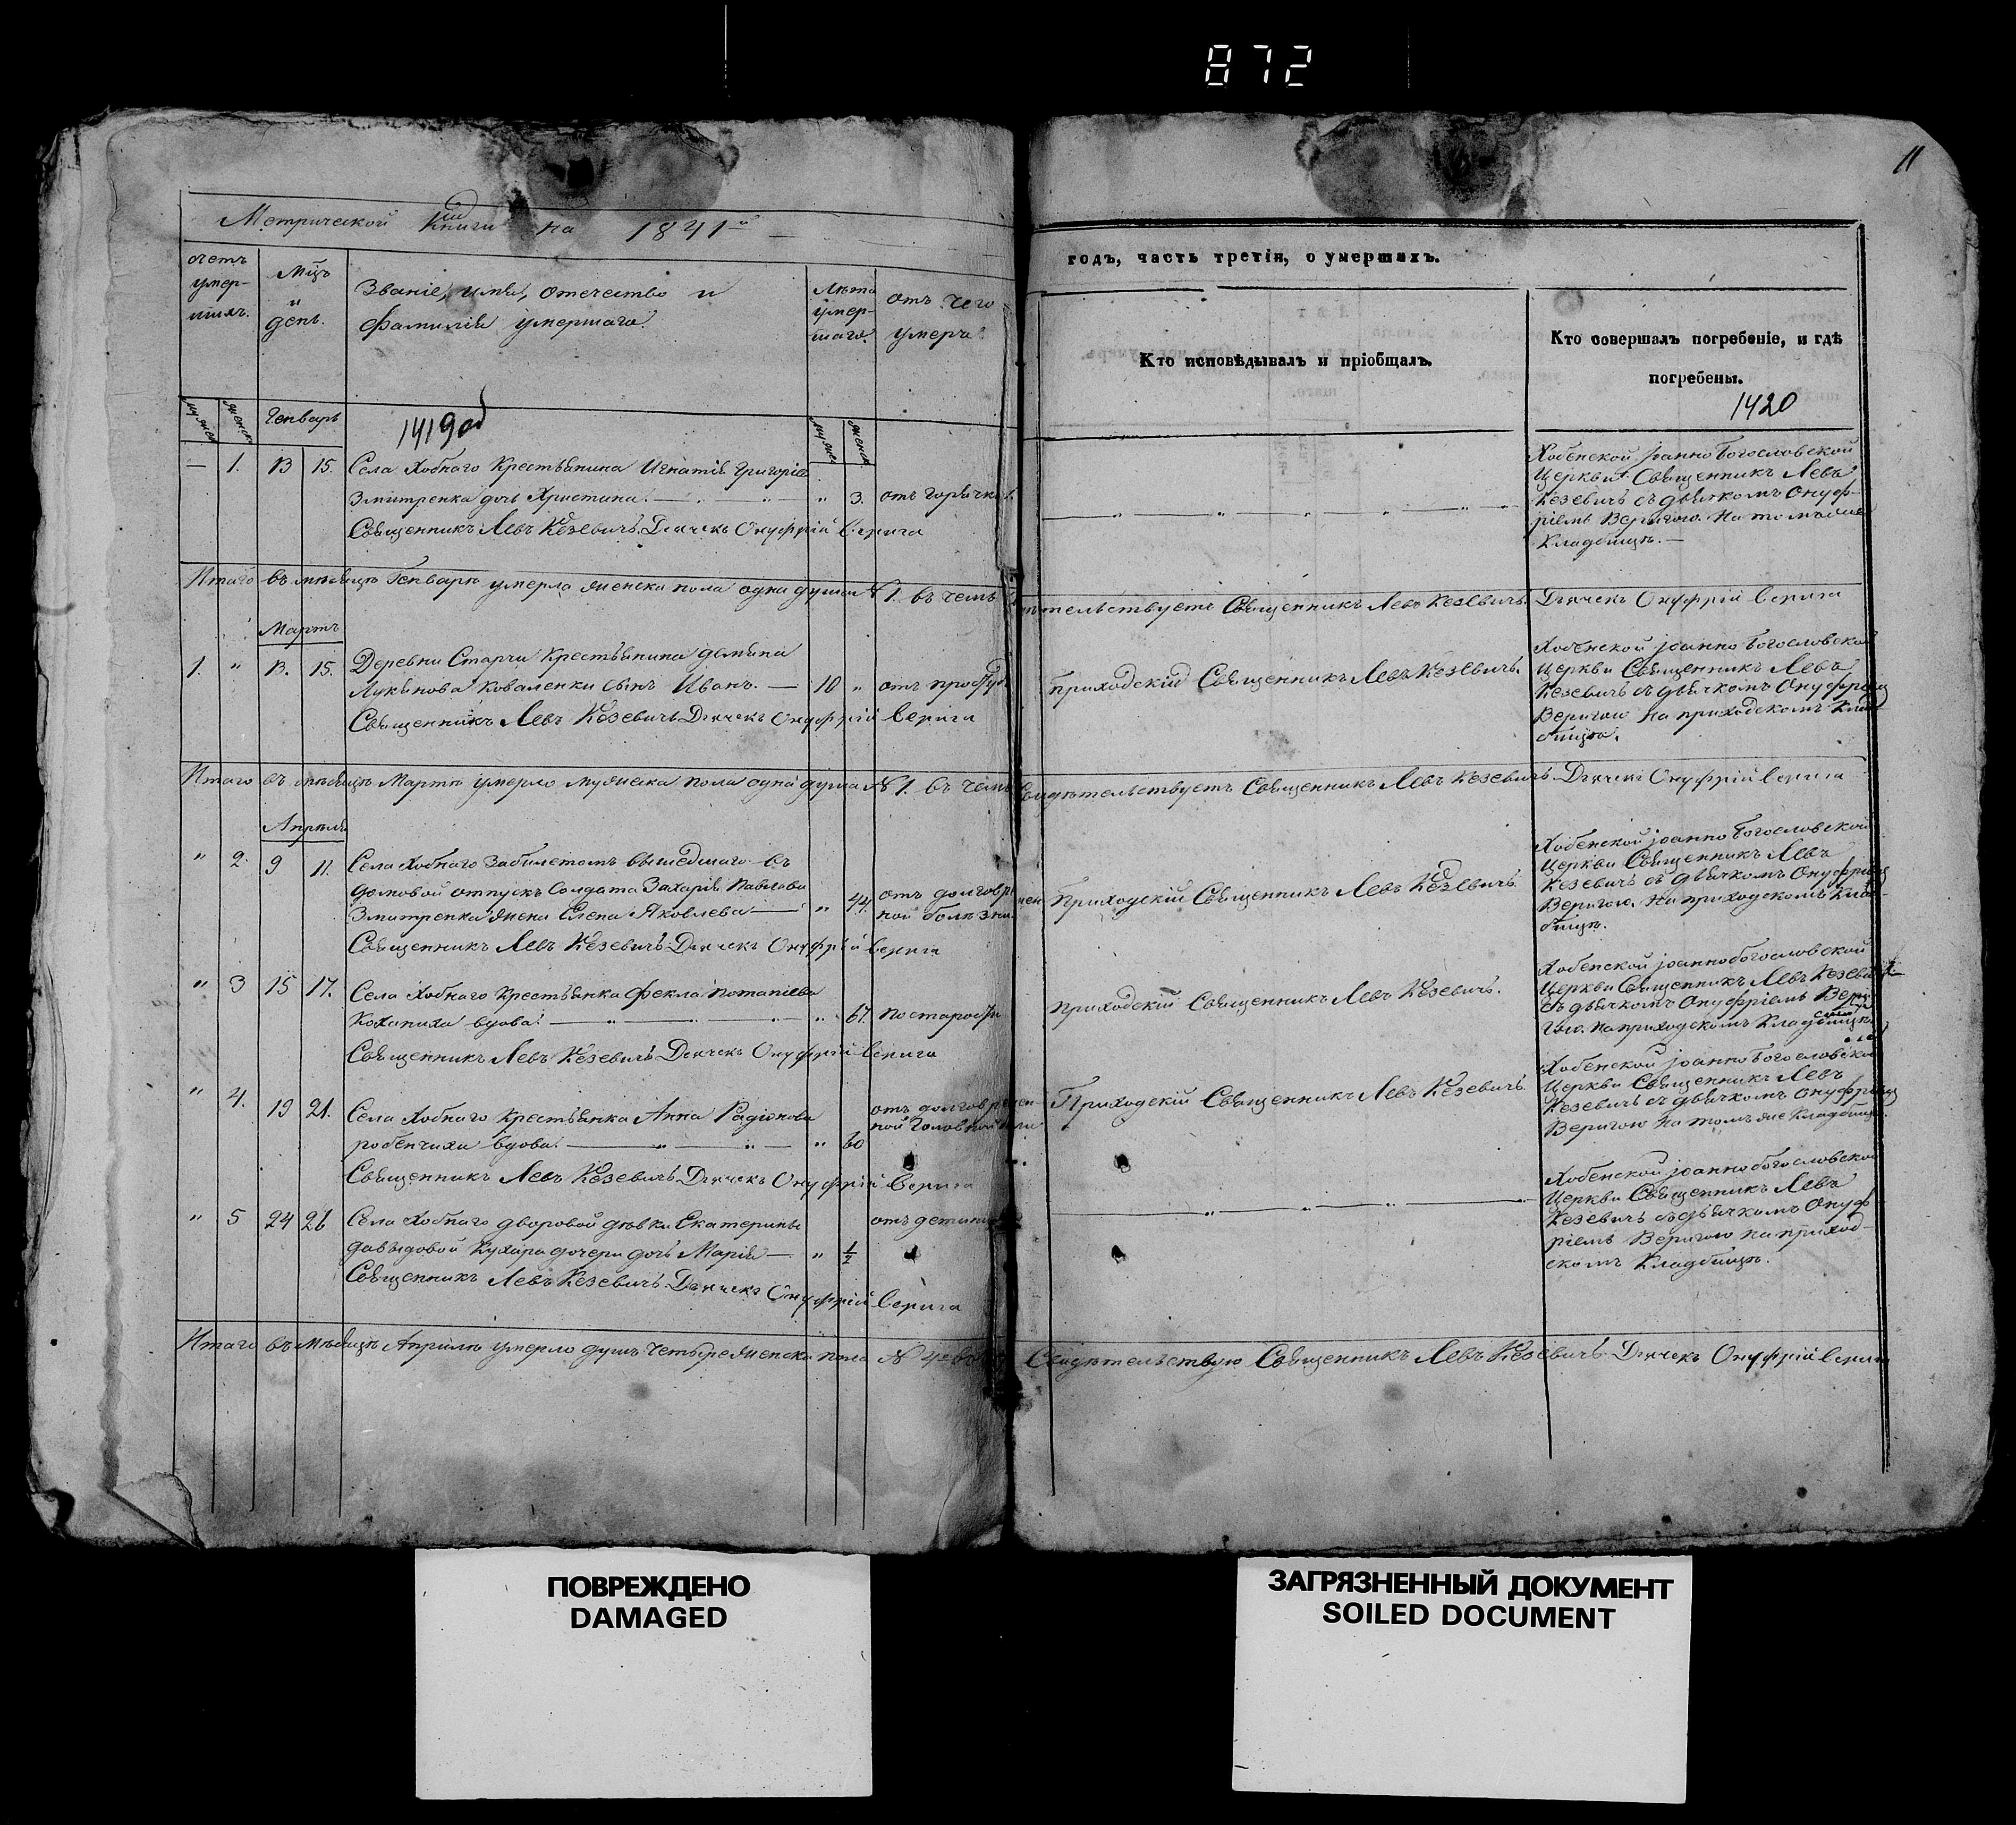 872
11
Метрической книги на 1841й
годъ, часть третія, о умершихъ.
счетъ умершихъ.
Мцъ и день.
Званіе, имя, отечество и
фамилія умершаго.
Лѣта умершаго.
отъ чего
умеръ.
Кто исповѣдывалъ и пріобщалъ.
Кто совершалъ погребеніе, и гдѣ
погребены.
1419 об
1420
мужеск женск Генварь мужес женск
— 1. 13 15. Села Хобнаго Крестьянина Игнатія Григоріева
Змитренка дочь Христина. — " 3. отъ горячки
Священникъ Левъ Кезевичъ. Дьячекъ Онуфрій Верига
Хобенской Іоанно Богословской
Церкви Священникъ Левъ
Кезевичъ съ дьячкомъ Онуф-
ріемъ Веригою. На томъ же
Кладбищѣ. —
Итаго въ мѣсяцѣ Генварѣ умерла женска пола одна душа № 1. въ чемъ свидѣтельствуетъ Священникъ Левъ Кезевичъ. Дьячекъ Онуфрій Верига
Мартъ
1. " 13. 15. Деревни Старчи Крестьянина Демяна
Лукянова Коваленки сынъ Иванъ. — 10 " отъ простуды
Священникъ Левъ Кезевичъ Дьячекъ Онуфрій Верига
приходскій Священникъ Левъ Кезевичъ.
Хобенской Іоанно Богословской
Церкви Священникъ Левъ
Кезевичъ съ дьячкомъ Онуфріемъ
Веригою на приходскомъ Клад-
бищѣ.
Итаго въ мѣсяцѣ Мартѣ умерло мужеска пола одна душа № 1. въ чемъ свидѣтельствуетъ Священникъ Левъ Кезевичъ Дьячекъ Онуфрій Верига
Апрѣль
" 2. 9 11. Села Хобнаго забилетомъ вышедшаго въ
домовой отпускъ Солдата Захарія Павлова
Змитренка жена Елена Яковлева — " 44. отъ долговремен
ной болѣзни.
Священникъ Левъ Кезевичъ Дьячекъ Онуфрій Верига
Приходскій Священникъ Левъ Кезевичъ
Хобенской Іоанно Богословской
Церкви Священникъ Левъ
Кезевичъ съ дьячкомъ Онуфріемъ
Веригою. На приходскомъ Клад-
бищѣ.
" 3 15 17. Села Хобнаго Крестьянка Фекла Потапіева
Коханиха вдова. — " 67. по старости
Священникъ Левъ Кезевичъ Дьячекъ Онуфрій Верига
приходскій Священникъ Левъ Кезевичъ.
Хобенской Іоанно богословской
Церкви Священникъ Левъ Кезевичъ
съ дьячкомъ Онуфріемъ Вери-
гою. на приходскомъ Кладбищѣ
" 4. 19 21. Села Хобнаго Крестьянка Анна Радіонова
робенчиха вдова. — " 60 отъ долговремен-
ной головной боли
Священникъ Левъ Кезевичъ Дьячекъ Онуфрій Верига
Приходскій Священникъ Левъ Кезевичъ.
Хобенской Іоанно Богословской
Церкви Священникъ Левъ
Кезевичъ съ дьячкомъ Онуфріемъ
Веригою на томъ же Кладбищѣ.
" 5 24 26 Села Хобнаго дворовой дѣвки Екатерины
Давыдовой Кухара дочери дочь Марія — " ½
Священникъ Левъ Кезевичъ Дьячекъ Онуфрій Верига
Хобенской Іоанно богословской
Церкви Священникъ Левъ
Кезевичъ съ дьячкомъ Онуф-
ріемъ Веригою на приход-
скомъ Кладбищѣ.
Итаго въ мѣсяцѣ Апрѣлѣ умерло душъ четыре женска пола № 4 Свидѣтельствую Священникъ Левъ Кезевичъ Дьячекъ Онуфрій Верига
ПОВРЕЖДЕНО
DAMAGED
ЗАГРЯЗНЕННЫЙ ДОКУМЕНТ
SOILED DOCUMENT